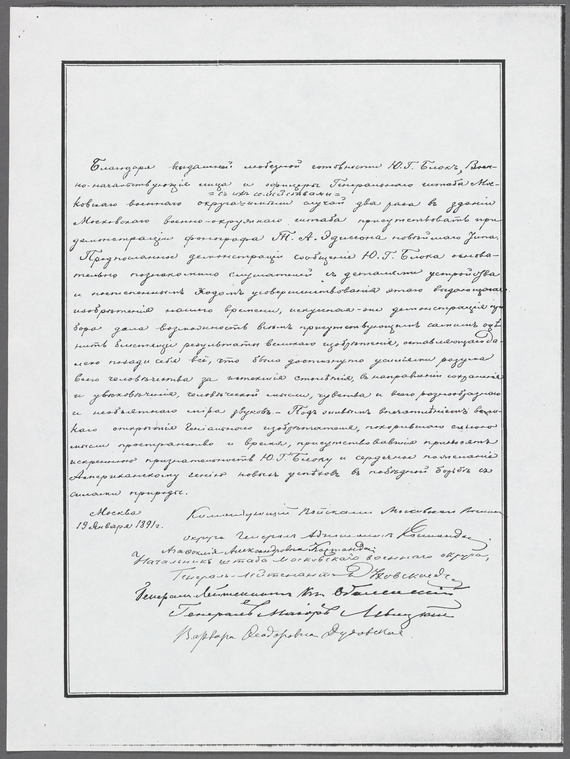 Благодаря выдающей любезной готовности Ю.Г. Блокъ, Воен-
но-начальствующiя лица и офицеры Генеральнаго штаба Мос-
=съ ихъ семействами=
ковскаго военнаго округа имѣли случай два раза въ зданiи
Московскаго военно-окружнаго штаба присутствовать при
демонстрацiи фонографа Т. А. Эдиссона новѣйшаго типа.
Предпосланное демонстрацiи сообщенiе Ю. Г. Блока основа-
тельно познакомило слушателей съ деталями устройства
и постепеннымъ ходомъ усовершенствованiя этого выдающагося
изобрѣтенiя нашего времени, искусная-же демонстрацiя при-
бора дала возможность всѣмъ присутствующимъ самимъ оцѣ-
нить блестящiе результаты великаго изобрѣтенiя, оставляющаго да-
леко позади себя всё, что было достигнуто усилiями разума
всего человѣчества за истекшiя столѣтiя, въ направленiи сохраненiя
и увѣковѣченiя, человѣческой мысли, чувства и всего разнообразнаго
и необъятнаго мiра звуковъ. – Подъ сильнымъ впечатлѣнiемъ вели-
каго открытiя генiальнаго изобрѣтателя, покорившаго силою
мысли пространство и время, присутствовавшiе приносятъ
искреннюю признательность Ю. Г. Блоку и сердечное пожеланiе
Американскому генiю новыхъ успѣховъ въ побѣдной борьбѣ съ
силами природы.
Москва
19 Января 1891 г.
Командующiй Войсками Московскаго Военнаго
округа Генералъ Адъютантъ Костанда
Апостолъ Костанда
Начальникъ штаба Московскаго военнаго округа,
Генералъ-Лейтенантъ Духовской
Генералъ Лейтенантъ Кн Оболенскiй
Генералъ Маiоръ Левицкiй
Варвара Ѳеодоровна Духовская